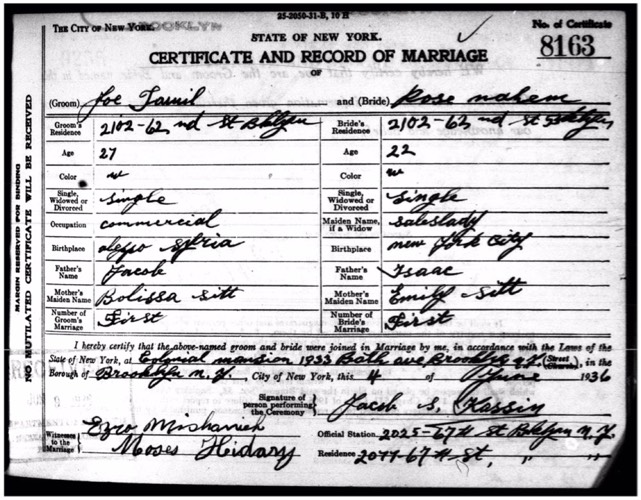 25-2050-31-B, 10 H
BROOKLYN
THE CITY OF NEW YORK.
STATE OF NEW YORK.
No. of Certificate
8163
CERTIFICATE AND RECORD OF MARRIAGE
OF
(Groom) Joe Tawil and (Bride) Rose nahem
Groom's Residence 2102-62 nd St Bklyn Bride's Residence 2102-62 nd St Bklyn
Age 27 Age 22
Color w Color w
Single, Widowed or Divorced single Single, Widowed or Divorced single
Occupation commercial Maiden Name, if a Widow saleslady
Birthplace aleppo syria Birthplace new York City
Father's Name Jacob Father's Name Isaac
Mother's Maiden Name Bolissa sitt Mother's Maiden Name Emily sitt
Number of Groom's Marriage First Number of Bride's Marriage First
MARGIN RESERVED FOR BINDING
NO MUTILATED CERTIFICATE WILL BE RECEIVED
I hereby certify that the above-named groom and bride were joined in Marriage by me, in accordance with the Laws of the
State of New York, at Colonial mansion 1933 Bath ave Brooklyn n.y. (Street Church), in the
Borough of Brooklyn n.y., City of New York, this 4 of June 1936
Signature of person performing the Ceremony Jacob S. Kassin
Witnesses to the Marriage
Ezra
Moses Hidary
Official Station 2025-67th St Bklyn n.y.
Residence 67th St, " "